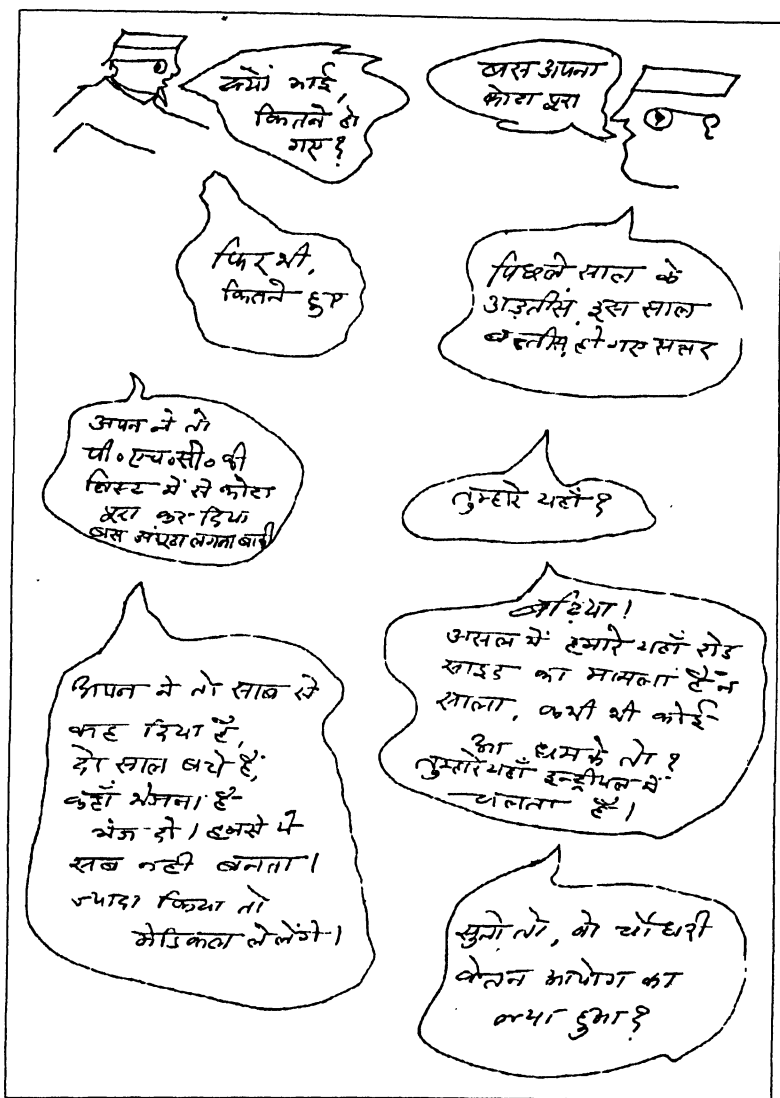 क्यों भाई,
कितने हो
गए?
बस अपना
कोटा पूरा
फिर भी,
कितने हुए
पिछले साल के
अड़तीस, इस साल
बत्तीस, हो गए सत्तर
अपन ने तो
पी.एच.सी. की
लिस्ट में से कोटा
पूरा कर दिया
बस अंगूठा लगना बाकी
तुम्हारे यहाँ?
बढ़िया!
असल में हमारे यहाँ रोड
साइड का मामला है न
साला, कभी भी कोई
आ धमके तो?
तुम्हारे यहाँ इन्ट्रीयल में
चलता है।
अपन ने तो साब से
कह दिया है,
दो साल बचे हैं,
कहाँ भेजना है-
भेज दो। हमसे ये
सब नहीं बनता।
ज्यादा किया तो
मेडिकल ले लेंगे।
सुनो तो, वो चौधरी
वेतन आयोग का
क्या हुआ?